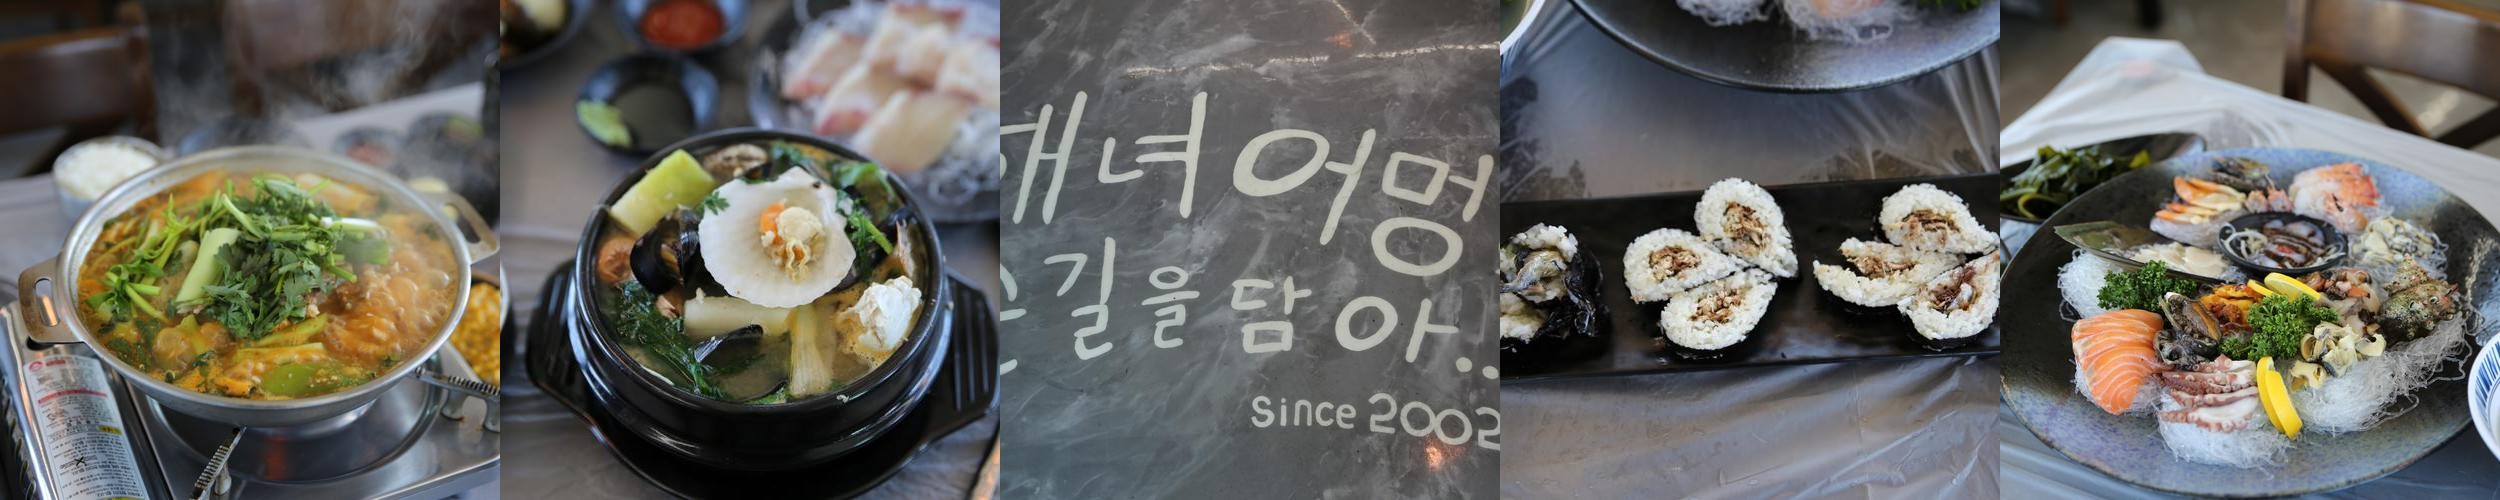 해녀어멍
손길을 담아..
Since 2002